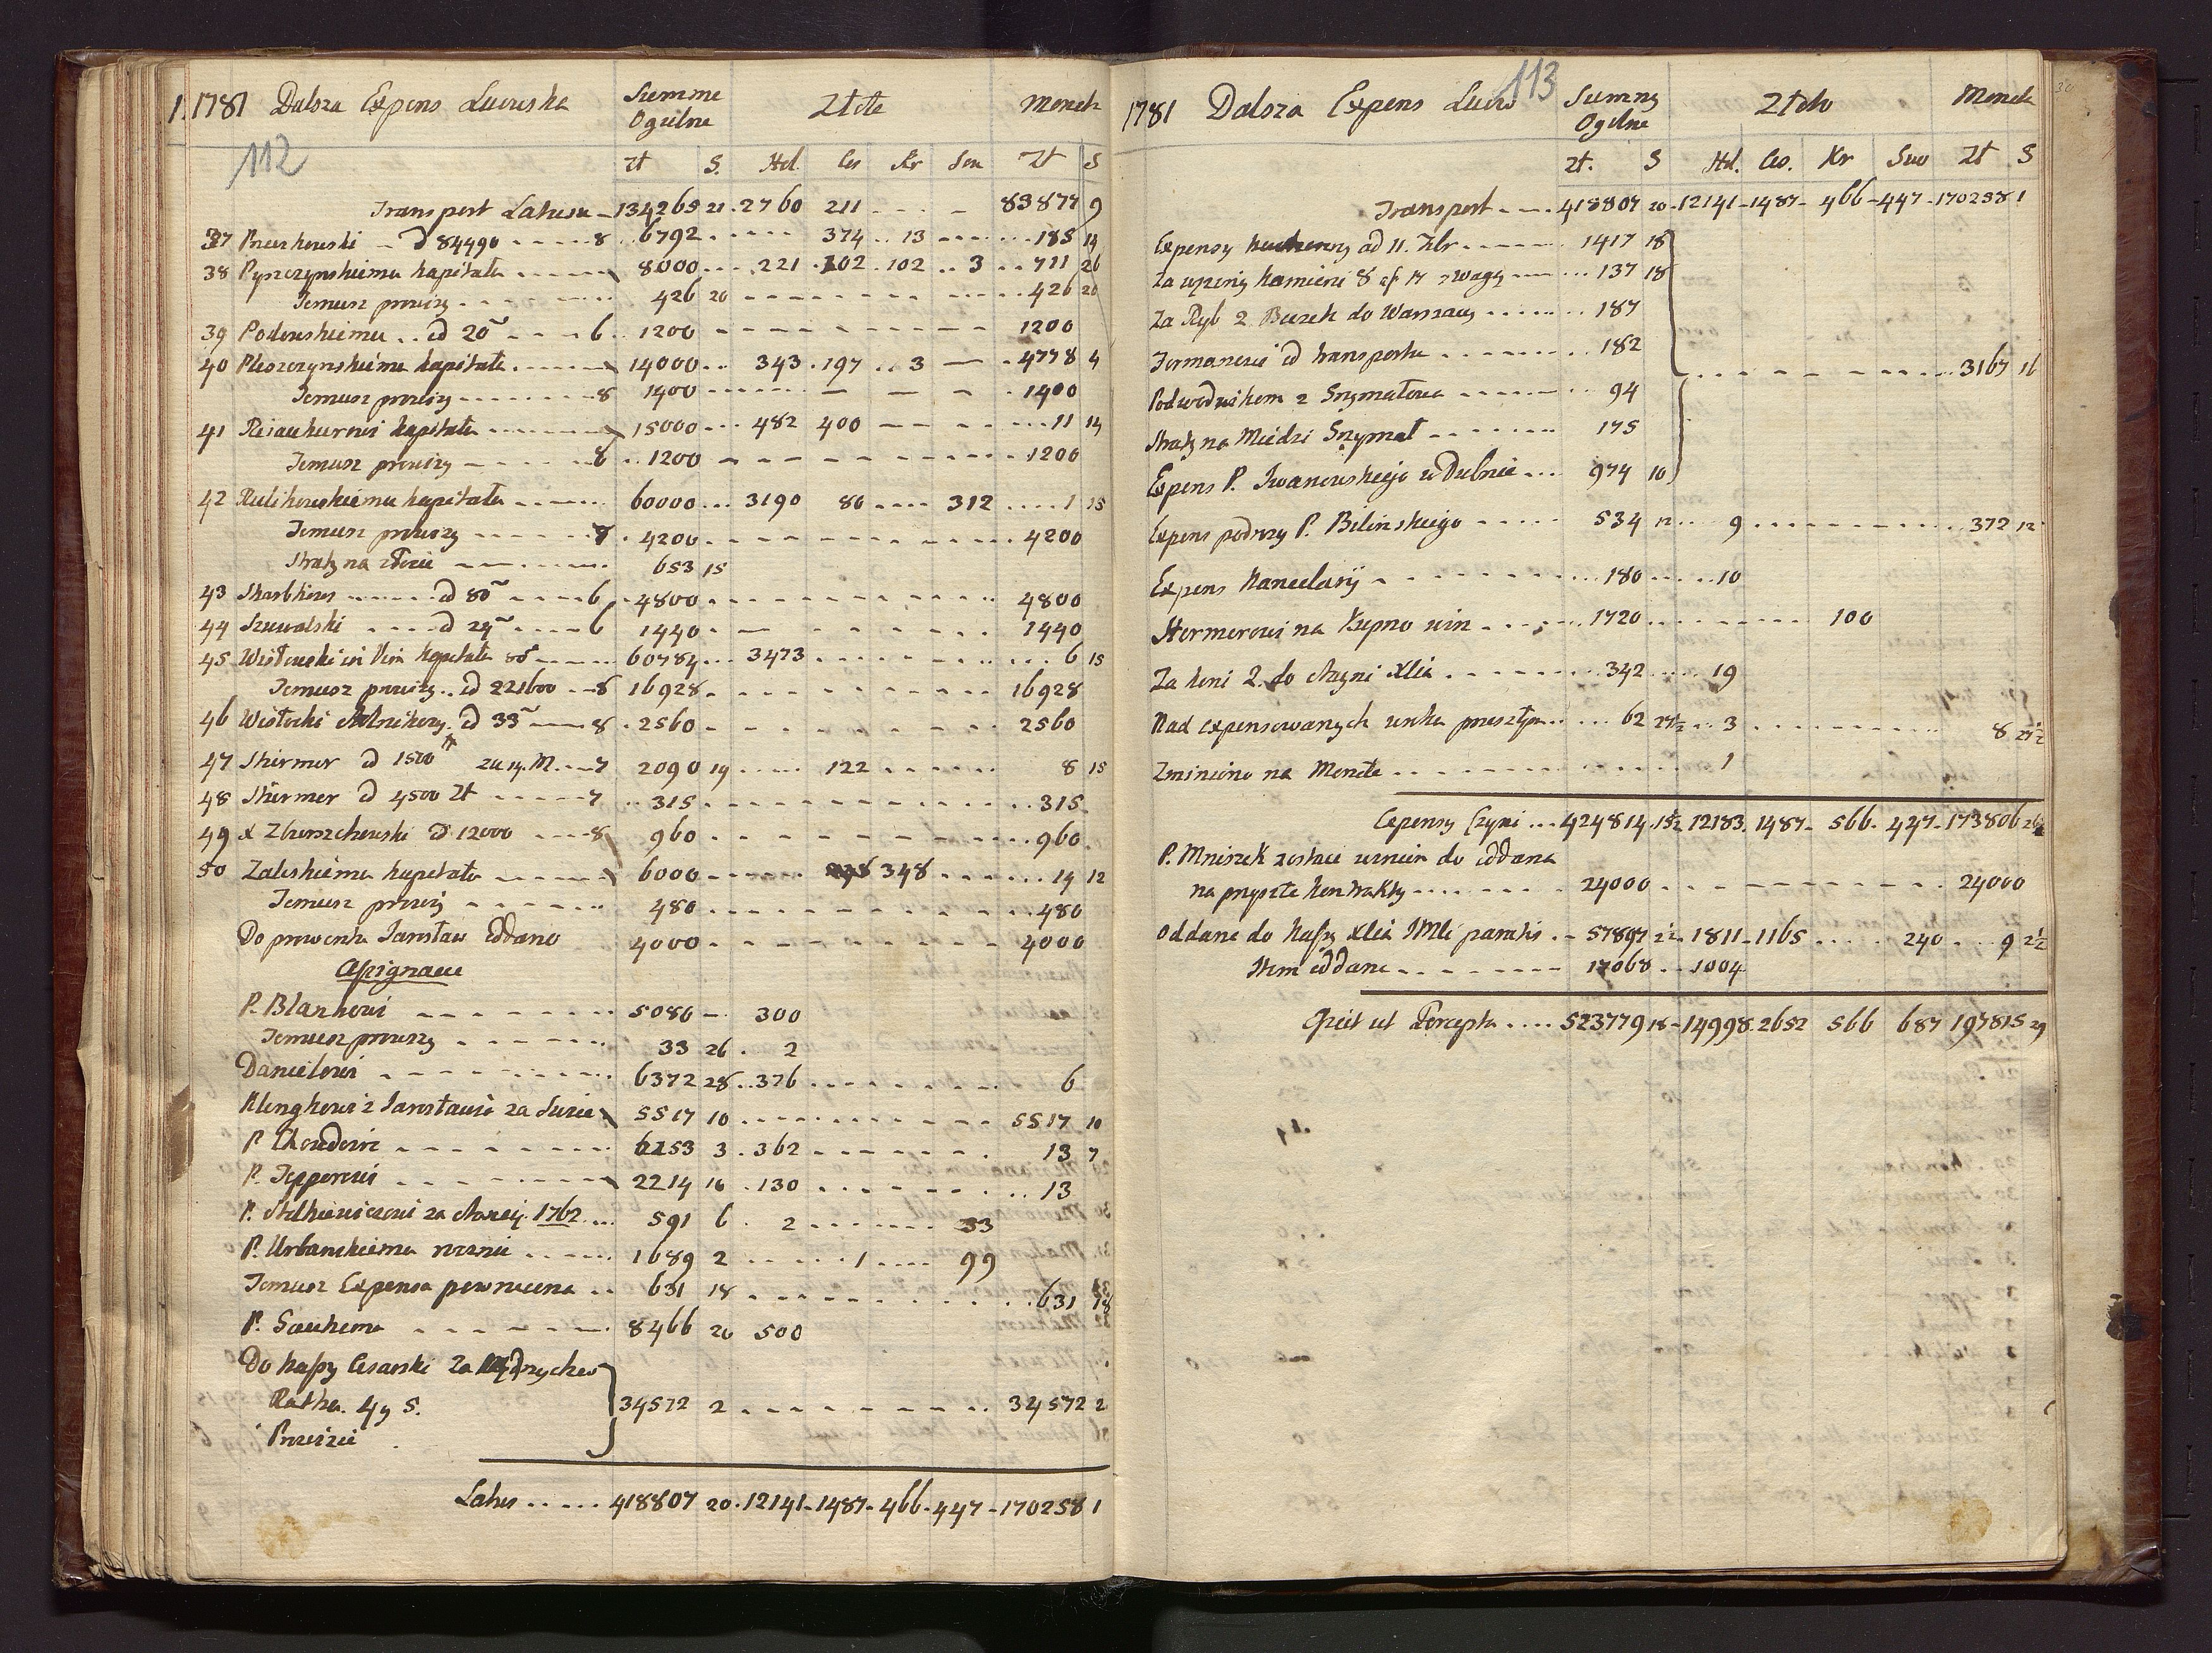 1781 Dalsza Expens Lwowska Summe Ogulne Złte Monek
112
Zł S. Hol. Ces Kr Sou Zł S
Transport Latusu - 134265 21 . 2760 211 - - - 83877 9
37 - d 84490 - - - 8 6792 - - - 374 .. 13 - - - 185 14
38 Pyszczynskiemu kapitału - - - 8000 .. 221 . 102 . 102 .. 3 .. 711 26
Temusz prowizy - - - 426 20 - - - 426 20
39 Podoskiemu .. d 20 - - 6 . 1200 - - - 1200
40 Pleszczynskiemu kapitału - - - 14000 .. 343 . 197 .. 3 - - 4778 4
Temusz prowizy - - - 8 1400 - - - 1400
41 kapitału - - - 15000 ... 482 400 - - - 11 14
Temusz prowizy - - - 8 .. 1200 - - - 1200
42 Rulikowskiemu kapitału - - - 60000 ... 3190 80 .... 312 .... 1 15
Temusz prowizy - - - 7 . 4200 - - - 4200
Straty na złocie - - - 653 15
43 - - - d 80 - - - 6 . 4800 - - - 4800
44 Szuwalski - - - d 24 - - - 6 1440 - - - 1440
45 kapitału - - - 60784 ... 3473 - - - 6 15
Temusz prowizy .. d 221600 - - 8 16928 - - - 16928
46 Wisłocki d 33 - - - 8 . 2560 - - - 2560
47 Shirmer d 1500 - - 7 2090 19 ..... 122 ..... 8 15
48 Shirmer d 4500 Zł - - - 7 .. 315 - - - 315
49 X d 12000 - - - 8 960 - - - 960
50 Zaleskiemu kapitału - - - 6000 - - - 348 - - - 14 12
Temusz prowizy - - - 480 - - - 480
Do prowentu Jarosław oddano 4000 - - - 4000
Assignacie
P. Blankowi - - - 5080 - 300
Temusz prowizy - - - 33 26 . 2
Danielowi - - - 6372 28 .. 376 - - - 6
z Jarosławia za - - - 5517 10 - - - 5517 10
P. - - - 6153 3 . 362 - - - 13 7
P. Tepperowi - - - 2214 16 . 130 - - - 13
P. za 1762 ... 591 6 . 2 ....... 33
P. Urbanskiemu - - - 1689 2 ..... 1 .... 99
Temusz Expensa powrucona .. 631 18 - - - 631 18
P. - - - 8466 20 500
Do kassy Cesarski Za
Ratha. 4 y 5. 34572 2 - - - 34572 2
Prowizie
Latus ..... 418807 20 . 12141 - 1487 - 466 - 447 - 170258 1
1781 Dalsza Expens Lwow 113 Summy Ogulne Złoto Monek
Zł. S Hol. Ces. Kr Suw Zł S
Transport - - - 418807 20 - 12141 - 1487 - 466 - 447 - 170258 1
Expensy kuchenny od 11. Xbr - - - 1417 18
Za kamieni 8 wagy - - - 137 18
Za Ryb 2 Beczek do Warszawy ...... 187
Formanowi od transportu - - - 182
- - - 3167 16
Podwodnikom z Szymanowa - - - 94
Straty na Miedzi Szymał - - - 175
Expens P. Iwanowskiego w Dubnie ... 974 10
Expens podrozy P. Bilinskiego - - - 534 12 .. 9 - - - 372 12
Expens Kancelaryi - - - 180 .... 10
Stermerowi na Kupno win - - - 1720 - - - 100
Za koni 2. do Xcia - - - 342 .... 19
Nad expensowanych - - - 62 27½ .. 3 - - - 8 27½
Zmieniono na Monete - - - 1
Expensy Czyni ... 424814 . 15½ 12183 . 1487 - 566 . 447 - 173806 26½
P. Mniszek zostaie winien do oddana
na przyszłe kontrakty - - - 24000 - - - 24000
Oddane do Kassy Xcia JMci paratis .. 57897 2½ . 1811 - 1165 .... 240 ... 9 2½
Item oddane - - - 17068 .. 1004
Facit ut Percepta .... 523779 18 - 14998 . 2652 566 687 197815 29